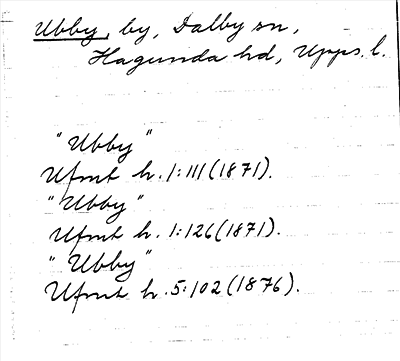 Ubby, by, Dalby sn,
Hagunda hd, Upps. l.
"Ubby"
Ufmt h. 1:111 (1871).
"Ubby"
Ufmt h. 1:126 (1871).
"Ubby"
Ufmt h. 5:102 (1876).